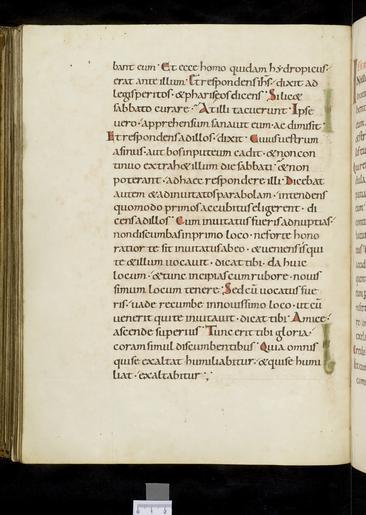 bant eum. Et ecce homo quidam hydropicus
erat ante illum. Et respondens ihs. dixit ad
legisperitos. & phariseos dicens. Si lic&
sabbato curare. At illi tacuerunt. Ipse
vero. apprehensum sanavit eum. ac dimisit.
Et respondens ad illos. dixit. Cuius vestrum
asinus. aut bos in puteum cadit. & non con
tinuo extrah& illum die sabbati. & non
poterant. ad haec respondere illi. Dicebat
autem & ad invitatos parabolam. intendens
quomodo primos accubitus eligerent. di
cens ad illos. Cum invitatus fueris ad nuptias.
non discumbas in primo loco. ne forte hono
ratior te sit invitatus ab eo. & veniens is qui
te & illum vocavit. dicat tibi. da huic
locum. & tunc incipias cum rubore. novis
simum locum tenere. Sed cū vocatus fue
ris. vade recumbe in novissimo loco. ut cū
venerit qui te invitavit. dicat tibi. Amice.
ascende superius. Tunc erit tibi gloria.
coram simul discumbentibus. Quia omnis
qui se exaltat humiliabitur. & qui se humi
liat. exaltabitur.